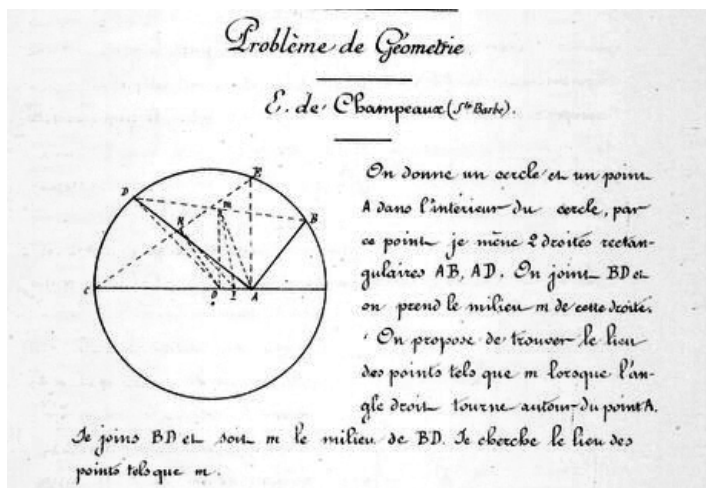 Problème de Géometrie
E. de Champeaux (Ste Barbe).
On donne un cercle et un point
A dans l'intérieur du cercle, par
ce point je mène 2 droites rectan-
gulaires AB, AD. On joint BD et
on prend le milieu m de cette droite.
On propose de trouver le lieu
des points tels que m lorsque l'an-
gle droit tourne autour du point A.
D
E
m
B
C
O
I
A
Je joins BD et soit m le milieu de BD. Je cherche le lieu des
points tels que m.